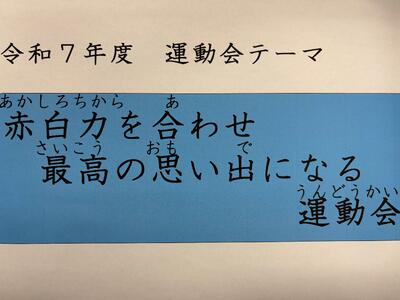 令和７年度　運動会テーマ
あかしろちから　あ
赤白力を合わせ
さいこう　おも　で
最高の思い出になる
うんどうかい
運動会